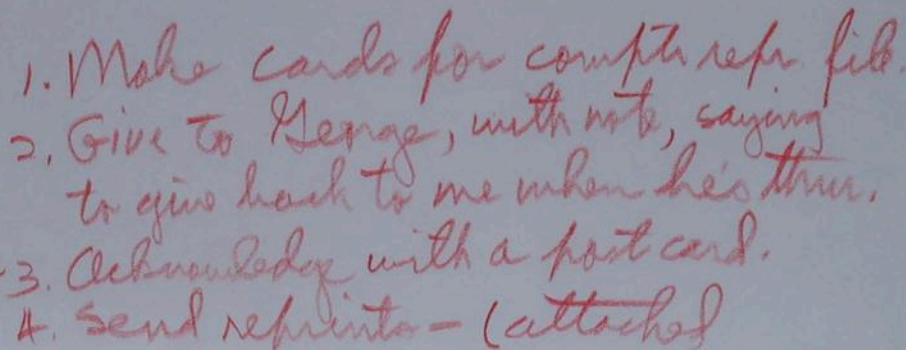 1. Make cards for compts repr file.
2. Give to George, with note, saying
to give back to me when he's thru.
3. Acknowledge with a post card.
4. Send reprints - (attached